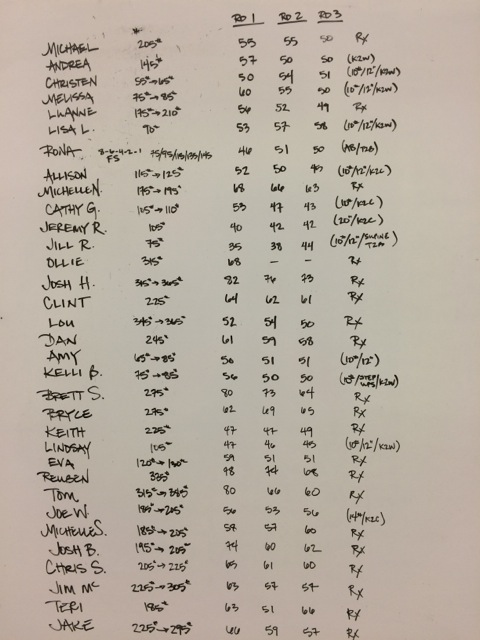 # RD 1 RD 2 RD 3
MICHAEL 205# 55 55 50 Rx
ANDREA 145# 57 50 50 (K2W)
CHRISTEN 55#→65# 50 54 51 (10#/12"/K2W)
MELISSA 75#→85# 60 55 50 (10#/12"/K2W)
LUANNE 175#→210# 56 52 49 Rx
LISA L. 90# 53 57 58 (10#/12"/K2W)
RONA 8-6-4-2-1 FS 75/95/115/135/145 46 51 50 (AB/T2B)
ALLISON 115#→125# 52 50 45 (10#/12"/K2W)
MICHELLE N. 175#→195# 68 66 63 Rx
CATHY G. 105#→110# 53 47 43 (10#/K2C)
JEREMY R. 105# 40 42 42 (20#/K2C)
JILL R. 75# 35 38 44 (10#/12"/SUPINE T2B)
OLLIE 315# 68 - - Rx
JOSH H. 345#→365# 82 76 73 Rx
CLINT 225# 64 62 61 Rx
LOU 345#→365# 52 54 50 Rx
DAN 245# 61 59 58 Rx
AMY 65#→85# 56 51 51 (10#/12")
KELLI B. 75#→85# 56 50 50 (10#/STEP UPS/K2W)
BRETT S. 275# 80 73 64 Rx
BRYCE 275# 62 69 65 Rx
KEITH 225# 47 47 49 Rx
LINDSAY 105# 47 46 45 (10#/12"/K2W)
EVA 120#→130# 59 51 51 Rx
REUBEN 335# 78 74 68 Rx
TOM 315#→385# 80 66 60 Rx
JOE W. 185#→205# 56 53 56 (14#/K2C)
MICHELLE S. 185#→205# 58 57 60 Rx
JOSH B. 195#→205# 74 60 62 Rx
CHRIS S. 205#→225# 65 61 60 Rx
JIM MC 225#→305# 63 57 57 Rx
TERI 185# 63 51 66 Rx
JAKE 225#→295# 66 59 57 Rx